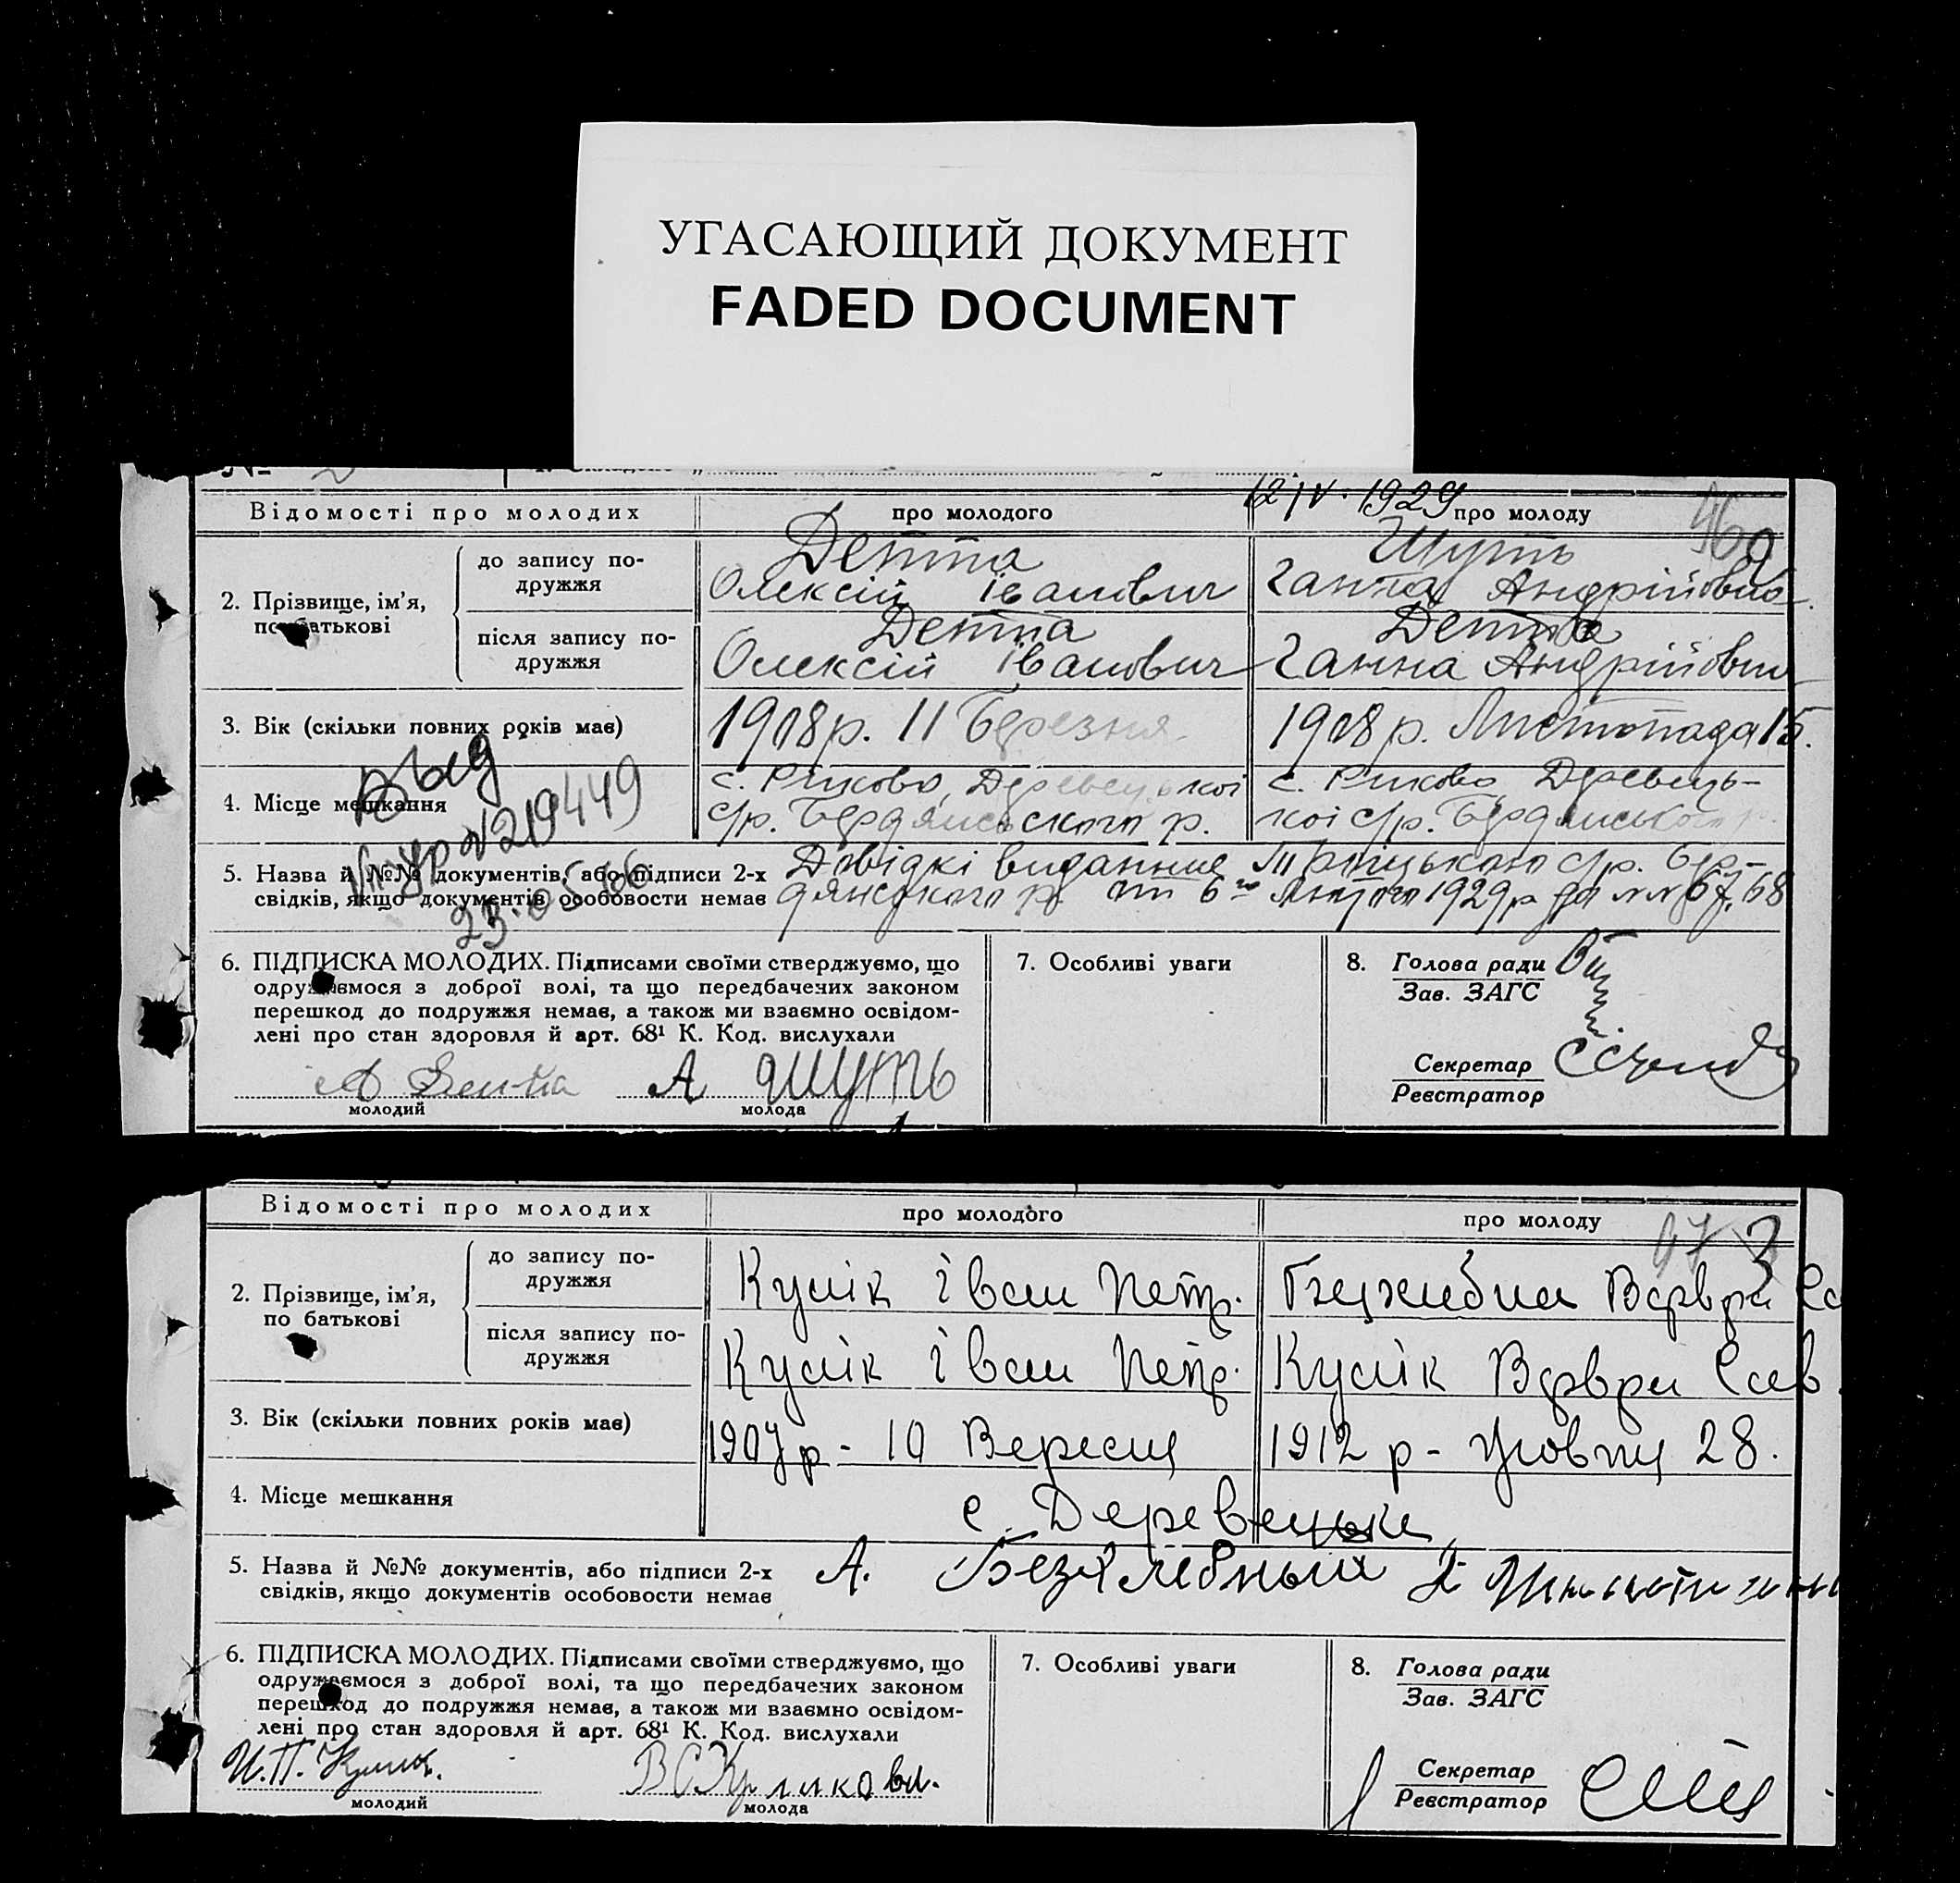 УГАСАЮЩИЙ ДОКУМЕНТ
FADED DOCUMENT
12/IV. 1929
Відомості про молодих
про молодого
про молоду
2. Прізвище, ім'я,
по батькові
до запису по-
дружжя
Детта
Олексій Іванович
Шуть
Ганна Андрійовна
після запису по-
дружжя
Детта
Олексій Іванович
Детта
Ганна Андрійовна
3. Вік (скільки повних років має)
1908р. 11 Березня
1908 р. Листопада 15.
4. Місце мешкання
с. Риково, Деревецькоі
с/р. Бердянського р.
с. Риково, Деревець-
коі с/р. Бердянського р.
219449
5. Назва й №№ документів, або підписи 2-х
свідків, якщо документів особовости немає
Довідкі виданние с/р. Бер-
дянського р. 6го Лютого 1929р за NN 67, 68
6. ПІДПИСКА МОЛОДИХ. Підписами своїми стверджуємо, що
одружаємося з доброї волі, та що передбачених законом
перешкод до подружжя немає, а також ми взаємно освідом-
лені про стан здоровля й арт. 68¹ К. Код. вислухали
А Детта А Шуть
молодий
молода
7. Особливі уваги
8. Голова ради
Зав. ЗАГС
Секретар
Реєстратор
Відомості про молодих
про молодого
про молоду
2. Прізвище, ім'я,
по батькові
до запису по-
дружжя
Кулік Іван Петр.
Варвра
після запису по-
дружжя
Кулік Іван Петр.
Кулік Варвра Сав.
3. Вік (скільки повних років має)
1907р - 10 Вересня
1912 р - Жовтня 28.
4. Місце мешкання
с. Деревецьке
5. Назва й №№ документів, або підписи 2-х
свідків, якщо документів особовости немає
А. Безхлебный
6. ПІДПИСКА МОЛОДИХ. Підписами своїми стверджуємо, що
одружаємося з доброї волі, та що передбачених законом
перешкод до подружжя немає, а також ми взаємно освідом-
лені про стан здоровля й арт. 68¹ К. Код. вислухали
И.П. Кулик.
молодий
молода
7. Особливі уваги
8. Голова ради
Зав. ЗАГС
Секретар
Реєстратор